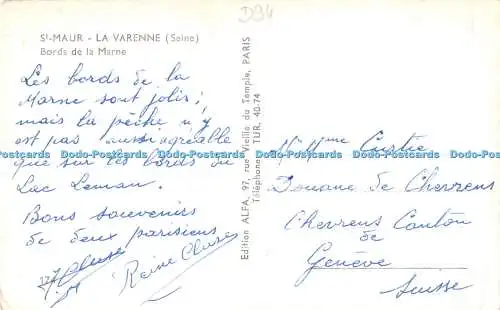 D94
St-MAUR - LA VARENNE (Seine)
Bords de la Marne
Les bords de la
Marne sont jolis;
mais la pêche n'y
est pas aussi agréable
que sur les bords du
Lac Leman.
Bons souvenirs
de deux parisiens
Reine Cluse
Edition ALFA, 97, rue Vieille du Temple, PARIS
Téléphone : TUR. 40-74
M. Mme Curtie
Douane de Chevrens
Chevrens Canton
de
Genève
Suisse
Dodo-Postcards Dodo-Postcards Dodo-Postcards Dodo-Postcards Dodo-Postcards